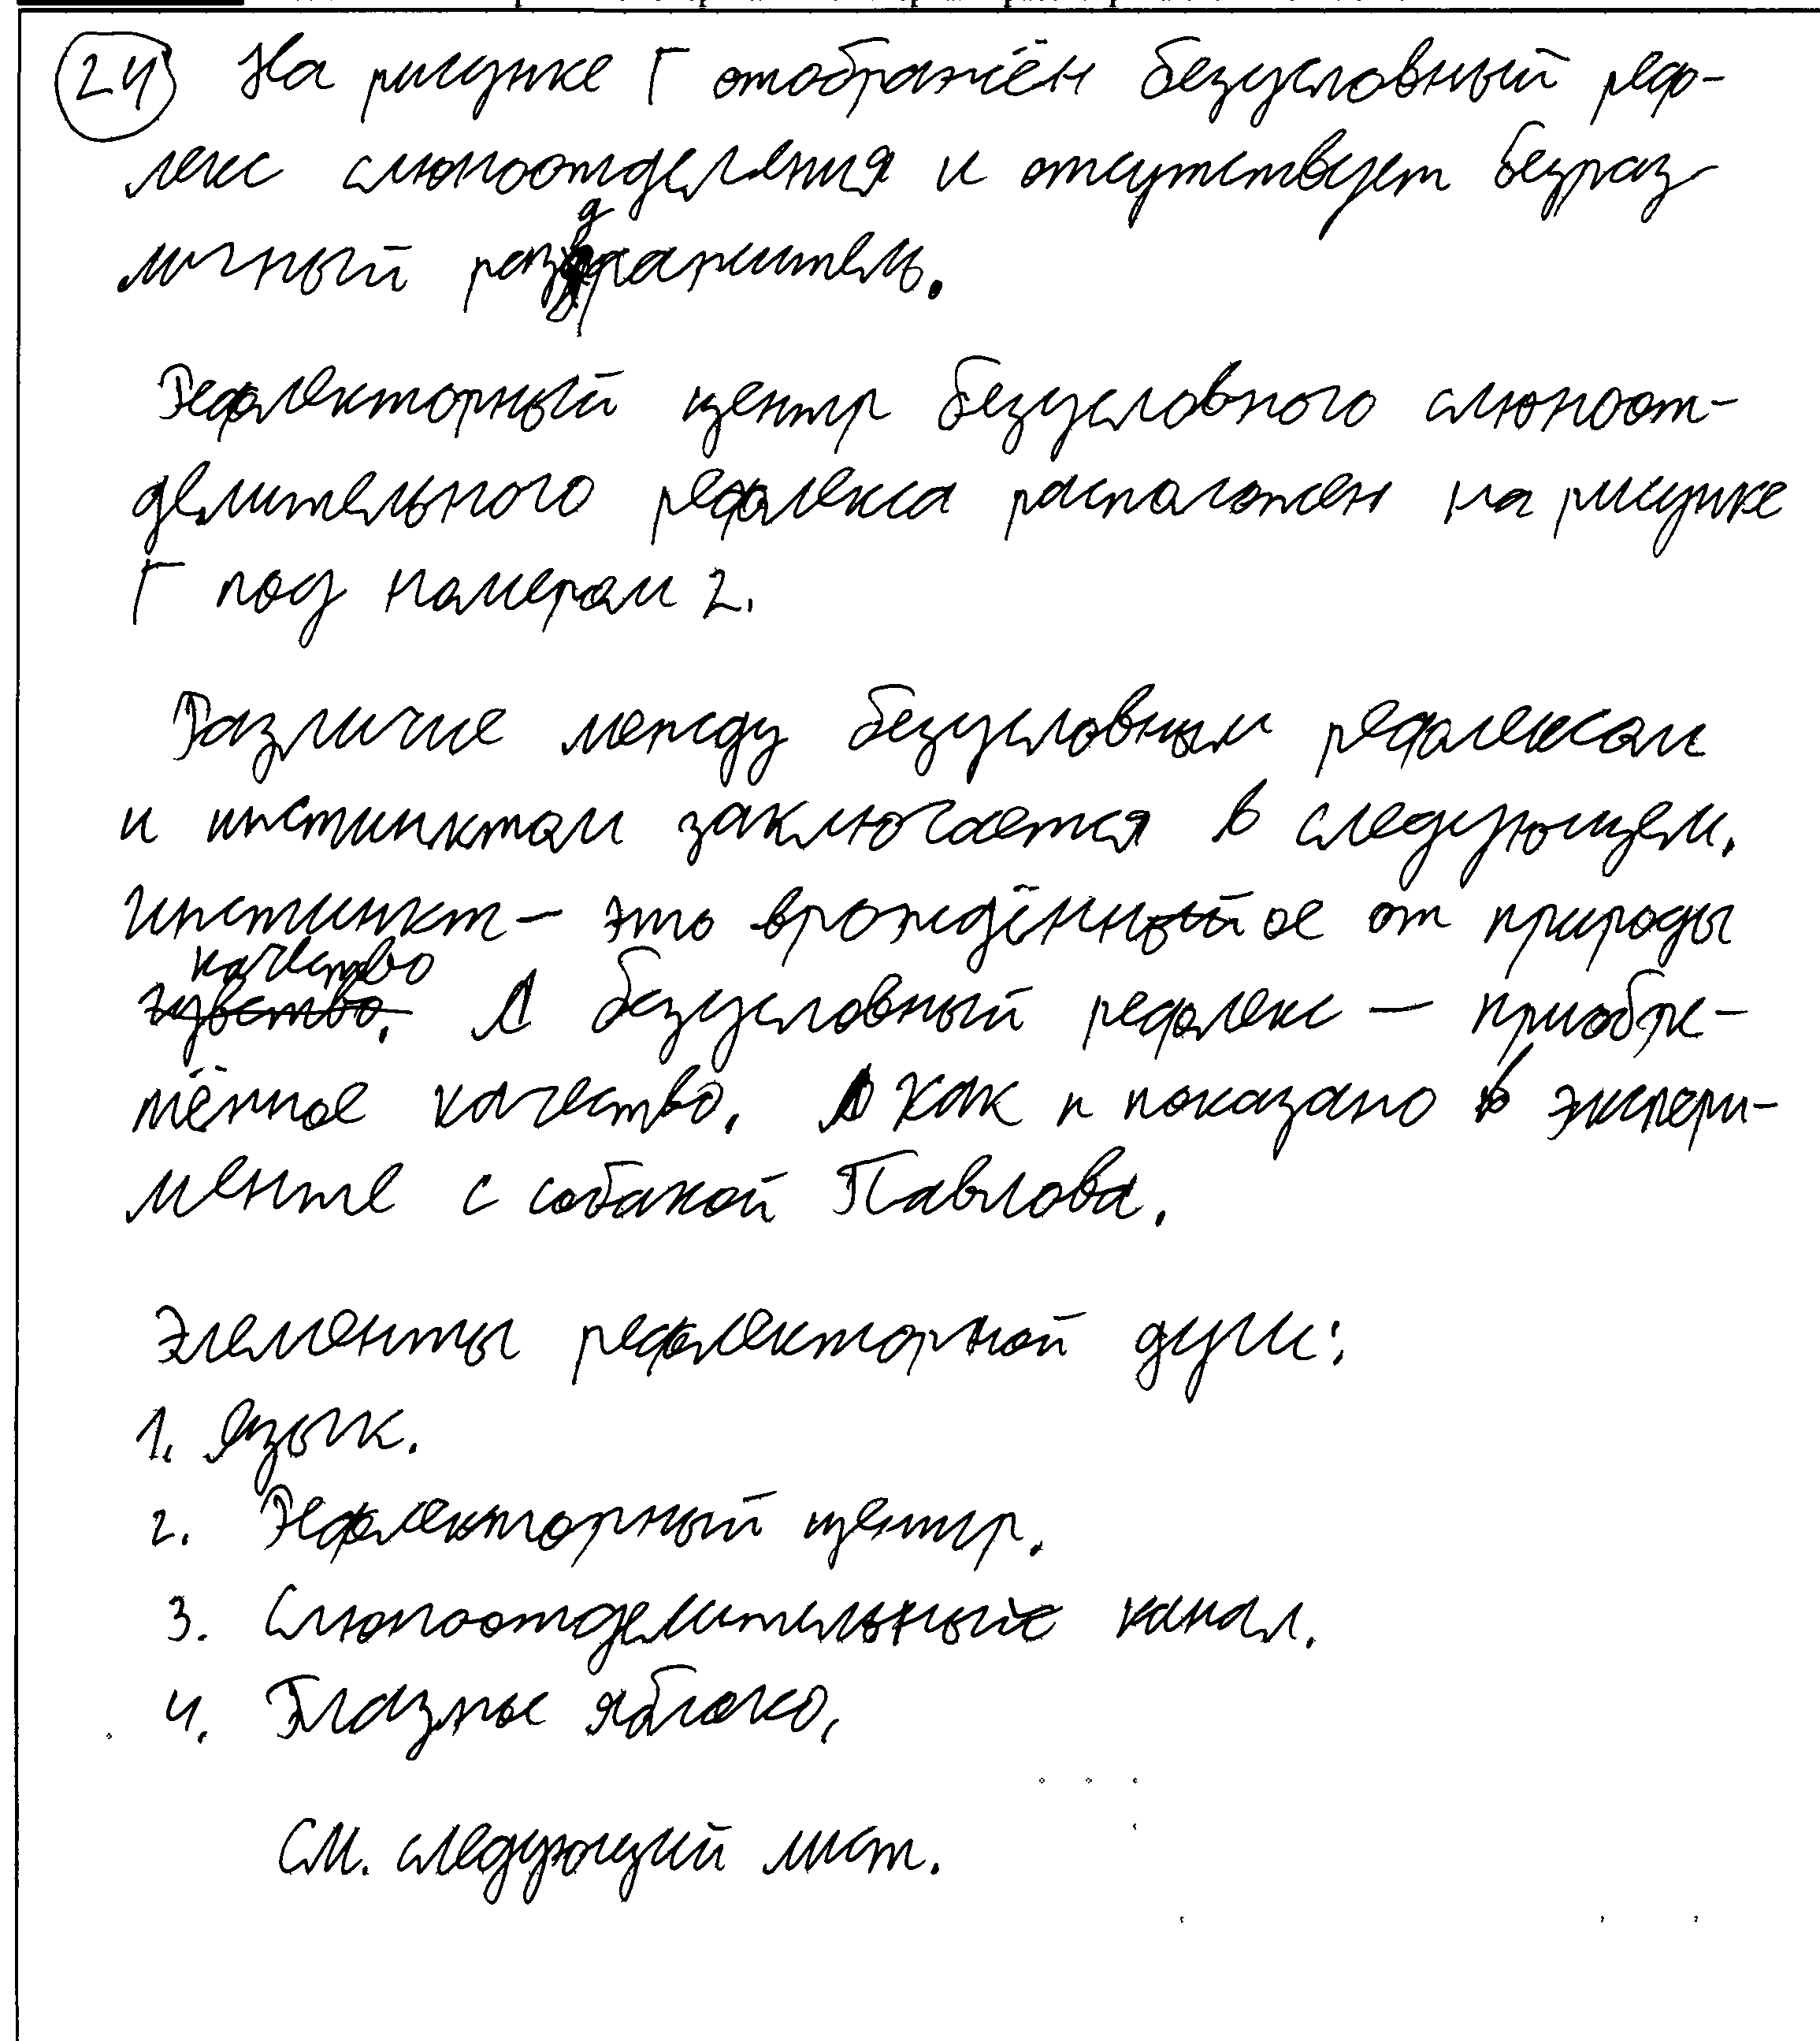 24 На рисунке Г отображён безусловный реф-
лекс слюноотделения и отсутствует безраз
личный раздражитель.
Рефлекторный центр безусловного слюноот-
делительного рефлекса расположен на рисунке
Г под номером 2.
Различие между безусловным рефлексом
и инстинктом заключается в следующем.
Инстинкт – это врождённое от природы
качество
чувство. А безусловный рефлекс – приобре-
тённое качество. Как и показано в экспери-
менте с собакой Павлова.
Элементы рефлекторной дуги:
1. Язык.
2. Рефлекторный центр.
3. Слюноотделительный канал.
4. Глазные яблоко.
См. следующий лист.